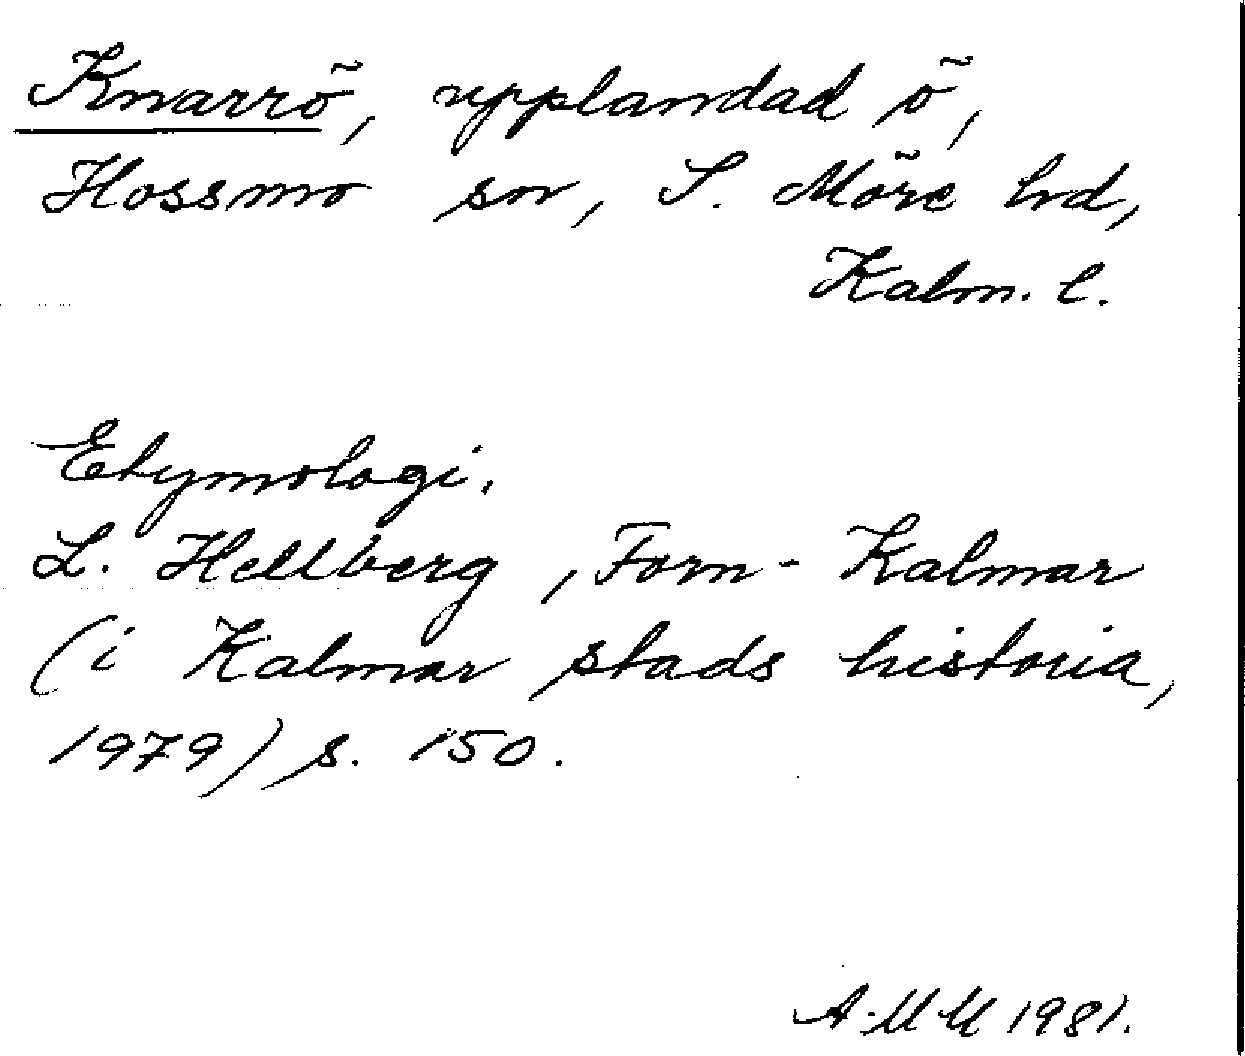 Knarrö, upplandad ö,
Hossmo sn, S. Möre hd,
Kalm. l.
Etymologi.
L. Hellberg, Forn-Kalmar
(i Kalmar stads historia,
1979) s. 150.
A-MM 1981.